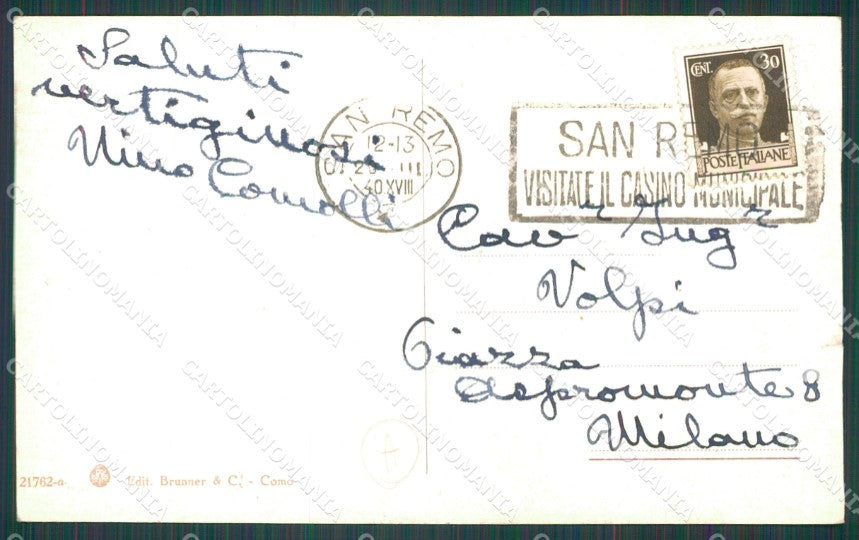 Saluti
vertiginosi
Nino Comolli
SAN REMO
12-13
40 XVIII
SAN REMO
VISITATE IL CASINO MUNICIPALE
CENT. 30
POSTE ITALIANE
Cavr Ingr
Volpi
Piazza
Aspromonte 8
Milano
A
21762-a Edit. Brunner & C. - Como
CARTOLINOMANIA